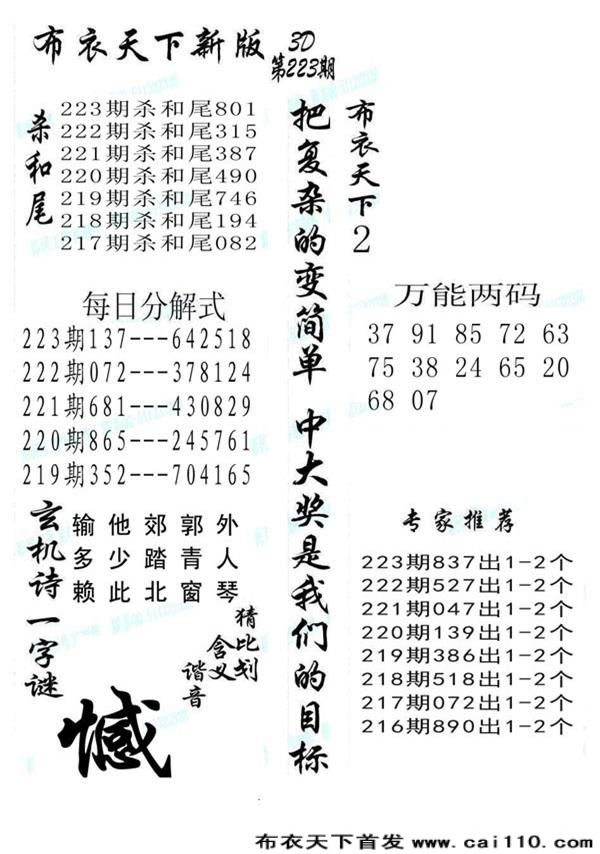 布衣天下新版
3D
第223期
杀和尾
223期杀和尾801
222期杀和尾315
221期杀和尾387
220期杀和尾490
219期杀和尾746
218期杀和尾194
217期杀和尾082
每日分解式
223期137---642518
222期072---378124
221期681---430829
220期865---245761
219期352---704165
玄机诗
输他郊郭外
多少踏青人
赖此北窗琴
一字谜
猜比划
含义
谐音
憾
把复杂的变简单 中大奖是我们的目标
布衣天下2
万能两码
37 91 85 72 63
75 38 24 65 20
68 07
专家推荐
223期837出1-2个
222期527出1-2个
221期047出1-2个
220期139出1-2个
219期386出1-2个
218期518出1-2个
217期072出1-2个
216期890出1-2个
布衣天下首发 www.cai110.com